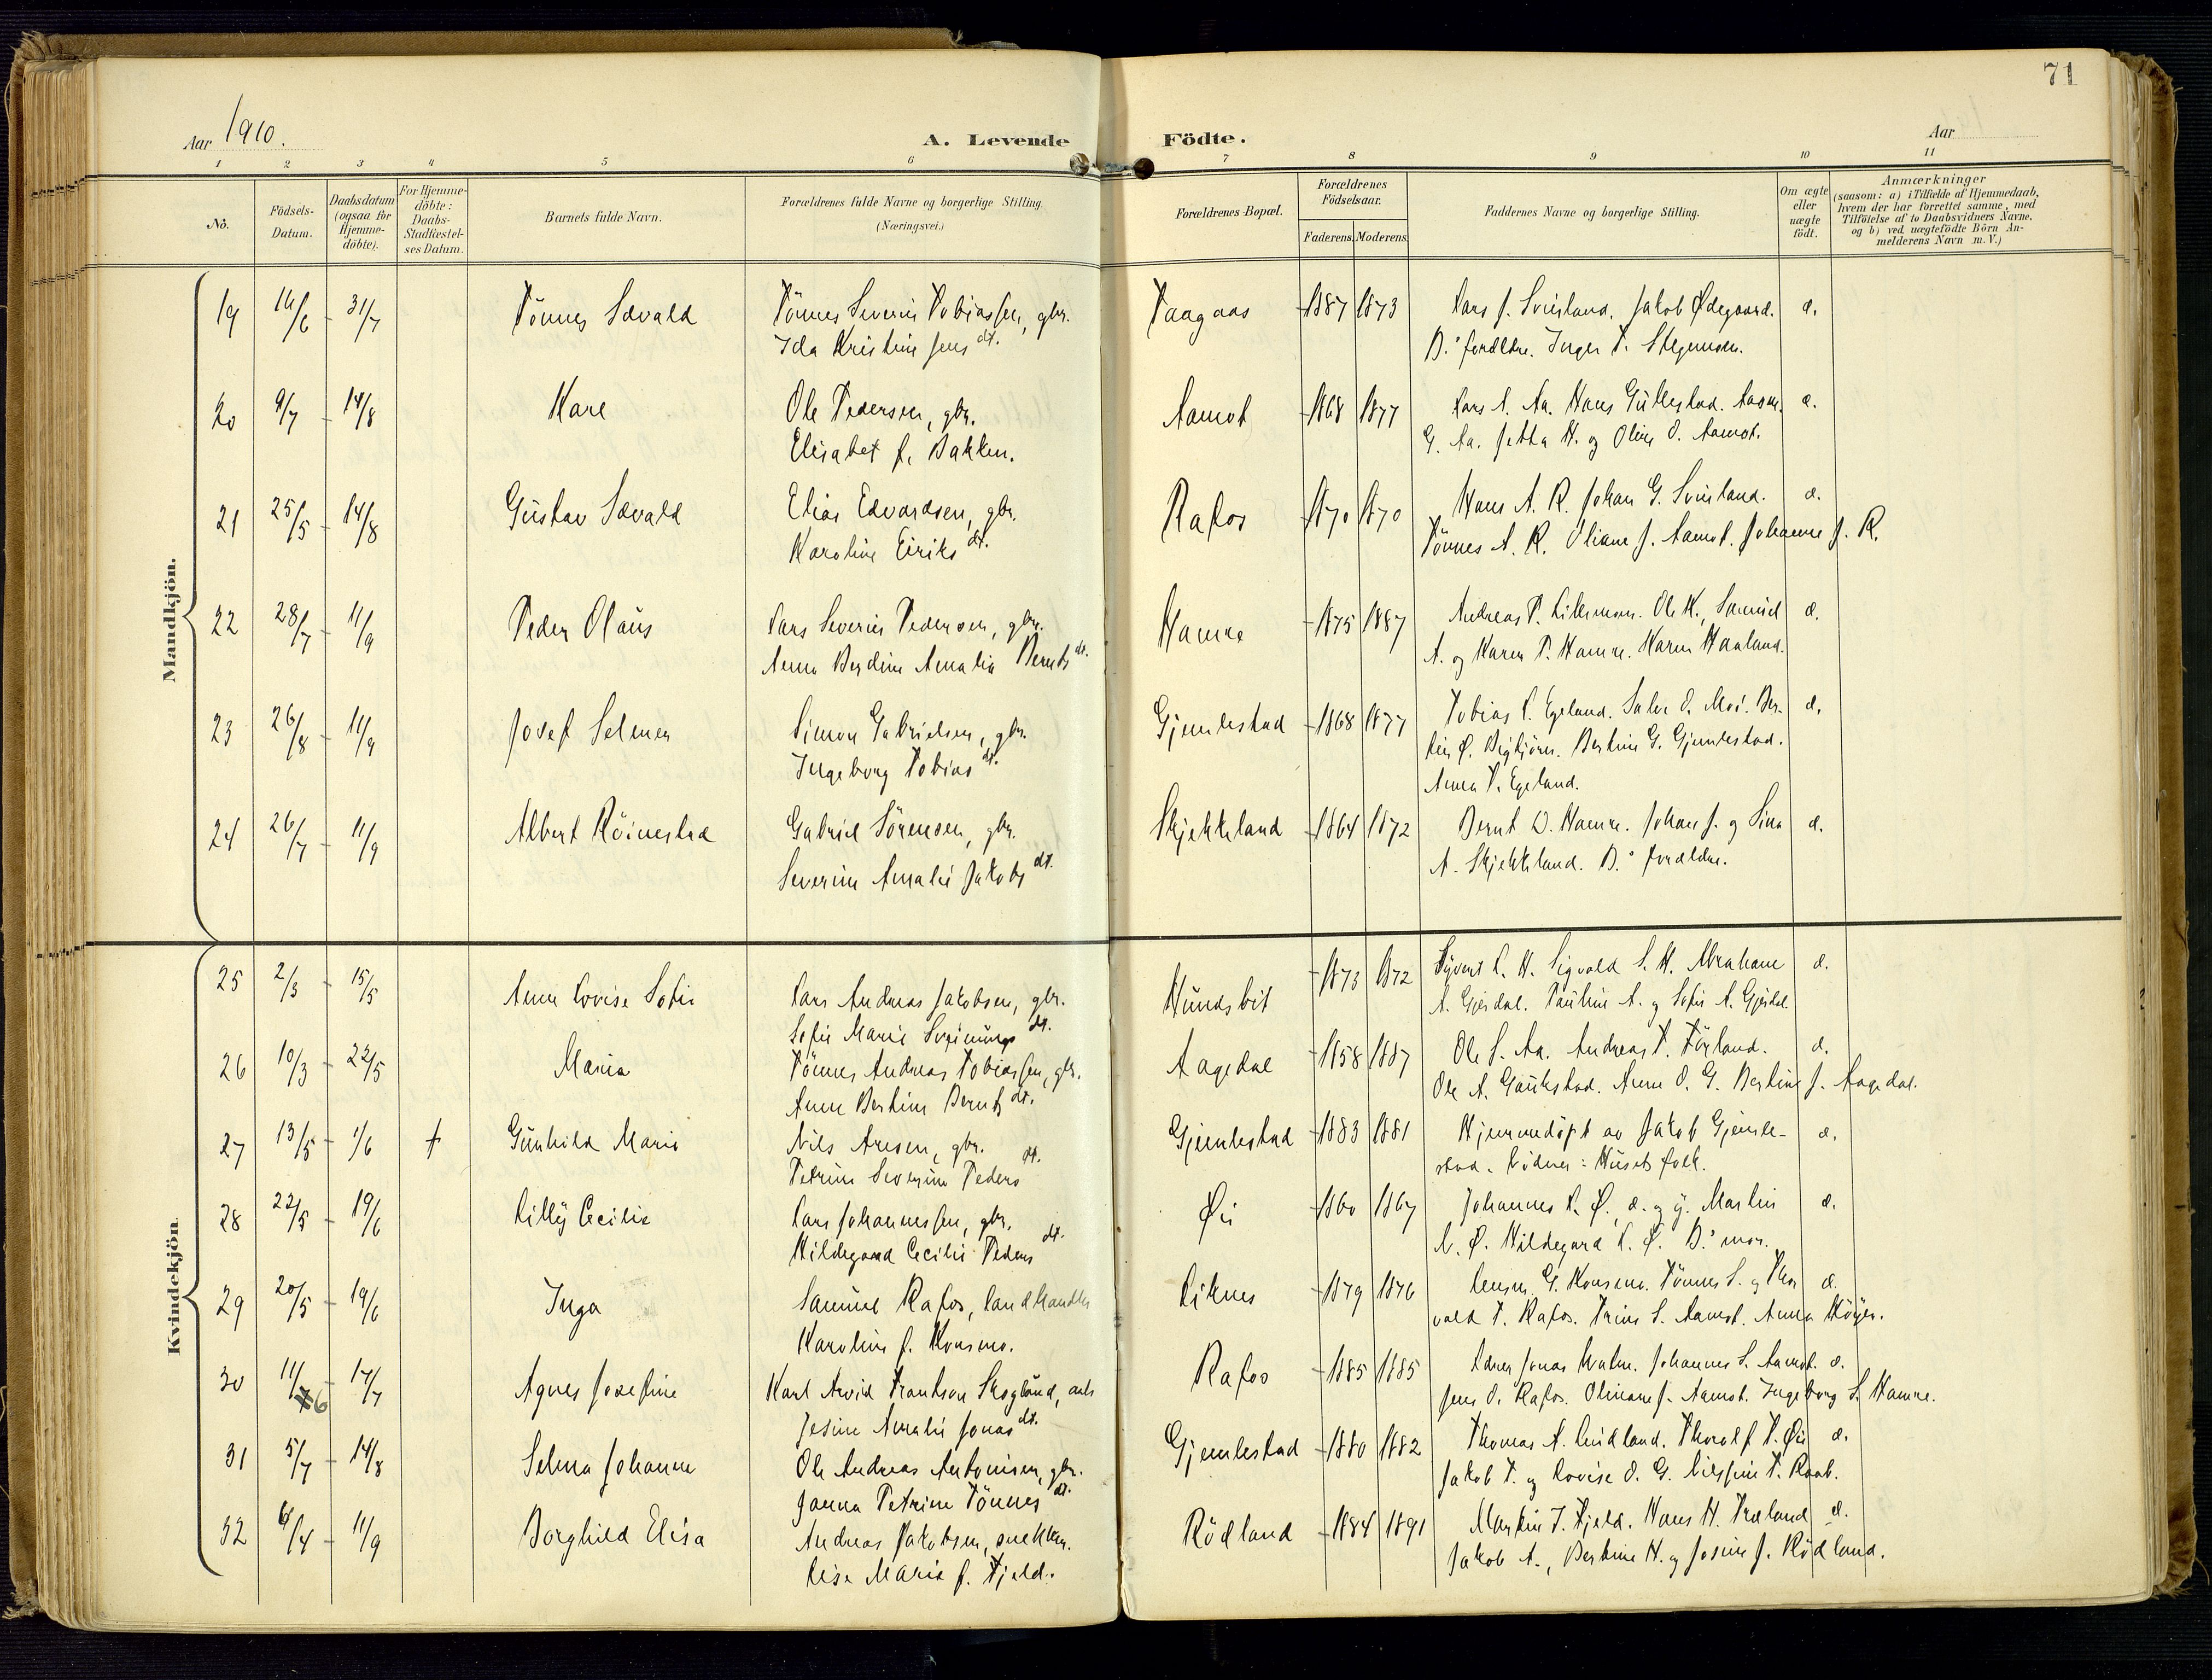 71
Aar 1910.
A. Levende Födte.
Aar
1 2 3 4 5 6 7 8 9 10 11
Nō.
Födsels-Datum.
Daabsdatum (ogsaa for Hjemme-döbte).
For Hjemme-döbte: Daabs-Stadfæstel-ses Datum.
Barnets fulde Navn.
Forældrenes fulde Navne og borgerlige Stilling. (Næringsvei.)
Forældrenes Bopæl.
Forældrenes Födselsaar.
Faderens. Moderens.
Faddernes Navne og borgerlige Stilling.
Om ægte eller uægte födt.
Anmærkninger
(saasom: a) i Tilfælde af Hjemmedaab,
hvem der har forrettet samme, med
Tilföielse af to Daabsvidners Navne.
og b) ved uægtefödte Börn An-
melderens Navn m. V.)
Mandkjön.
19 16/6 - 31/7 Tönnes Sævald Tönnes Severin Tobiassen, gbr. Taagaas 1887 1873 Lars J. Sviland. Jakob Ødegaard. æ.
Ida Kristine Jens dt. B.' forældre. Inger T.
20 9/7 - 14/8 Kare Ole Pedersen, gbr. Aamot 1868 1877 Lars A. Aa. Hans Gullestad. æ.
Elisabet f. Bakken. G. Aa. Jetta H. og Oline O. Aamot.
21 25/5 - 14/8 Gustav Sævald Elias Edvardsen, gbr. Rafos 1870 1870 Hans A. R. Johan G. Svinland. æ.
Karoline Eiriks dt. Tönnes A. R. Oliane J. Aamot. Johanne J. R.
22 28/7 - 11/9 Peder Olaus Lars Severin Pedersen, gbr. Hamre 1875 1887 Andreas P. Ole K., Samuel æ.
Anna Berdine Amalia Bernts dt. A. og Karen P. Hamre. Karen Haaland.
23 26/8 - 11/9 Josef Selmer Simon Gabrielsen, gbr. Gjemlestad 1868 1877 Tobias L. Egeland. Salve O. Moi. Ber- æ.
Ingeborg Tobias dt. tin Ø. Bertine G. Gjemlestad.
Anna T. Egeland.
24 26/7 - 11/9 Albert Röinestad Gabriel Sörensen, gbr. Skjekkeland 1864 1872 Bernt O. Hamre. Johan J. og Sina æ.
Severine Amalie Jakobs dt. A. Skjekkeland. B.' forældre.
Kvindekjön.
25 2/3 - 15/5 Anna Lovise Sofie Lars Andreas Jakobsen, gbr. Hundsbit 1873 1872 Syvert L. H. Sigvald S. H. Abraham æ.
Sofie Marie dt. A. Gjerdal. Pauline A. og Sofie A. Gjerdal.
26 10/3 - 22/5 Maria Tönnes Andreas Tobiassen, gbr. Aagedal 1858 1887 Ole S. Aa. Andreas T. Förland. æ.
Anne Bertine Bernts dt. Ole A. Gaukstad. Anne O. G. Bertine J. Aagedal.
27 13/5 - 1/6 + Gunhild Marie Nils Aresen, gbr. Gjemlestad 1883 1881 Hjemmedøpt av Jakob Gjemle- æ.
Petrine Severine Peders dt. stad. Vidner: Husets folk.
28 22/5 - 19/6 Lilly Cecilie Lars Johannessen, gbr. Øie 1860 1867 Johannes L. Ø. æ. og y. Martin æ.
Hildegard Cecilie Peders dt. L. Ø. Hildegard L. Ø. B.' mor.
29 20/5 - 19/6 Inga Samuel Rafos, landhandler Liknes 1879 1876 G. Konsmo. Tönnes S. og Thor æ.
Karoline f. Konsmo. vald T. Rafos. Trine S. Aamot. Anna Höyer.
30 11/6 - 17/7 Agnes Josefine Karl Arvid Frantson Skoglund, arb Rafos 1885 1885 Jonas Johannes S. Aamot. æ.
Jesine Amalie Jonas dt. Jens O. Rafos. Oliane J. Aamot. Ingeborg S. Hamre.
31 5/7 - 14/8 Selma Johanne Ole Andreas Antonisen, gbr. Gjemlestad 1880 1882 Thomas A. Lindland. Thoralf T. Øie æ.
Janna Petrine Tönnes dt. Jakob T. og Lovise O. G. T. Raab.
32 6/4 - 11/9 Borghild Elisa Andreas Jakobsen, snekker. Rödland 1884 1891 Martin T. Fjeld. Hans H. Træland æ.
Lise Marie f. Fjeld. Jakob A., Bertine H. og Josine J. Rödland.